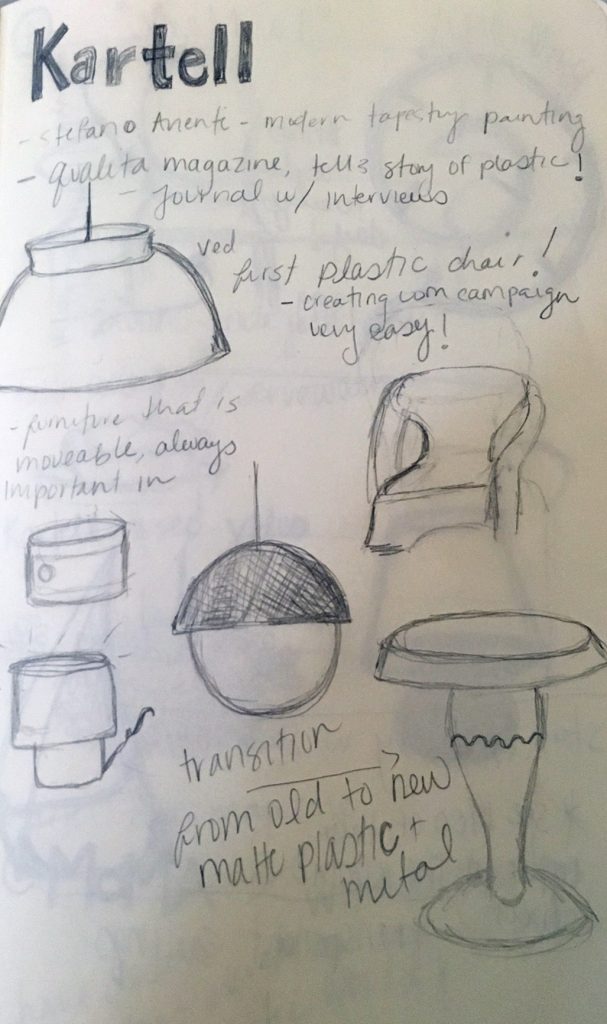 Kartell
- Stefano Arienti - modern tapestry painting
- qualita magazine, tells story of plastic!
- Journal w/ interviews
ved
first plastic chair!
- creating com campaign
very easy!
- furniture that is
moveable, always
important in
transition
from old to new
matte plastic +
metal